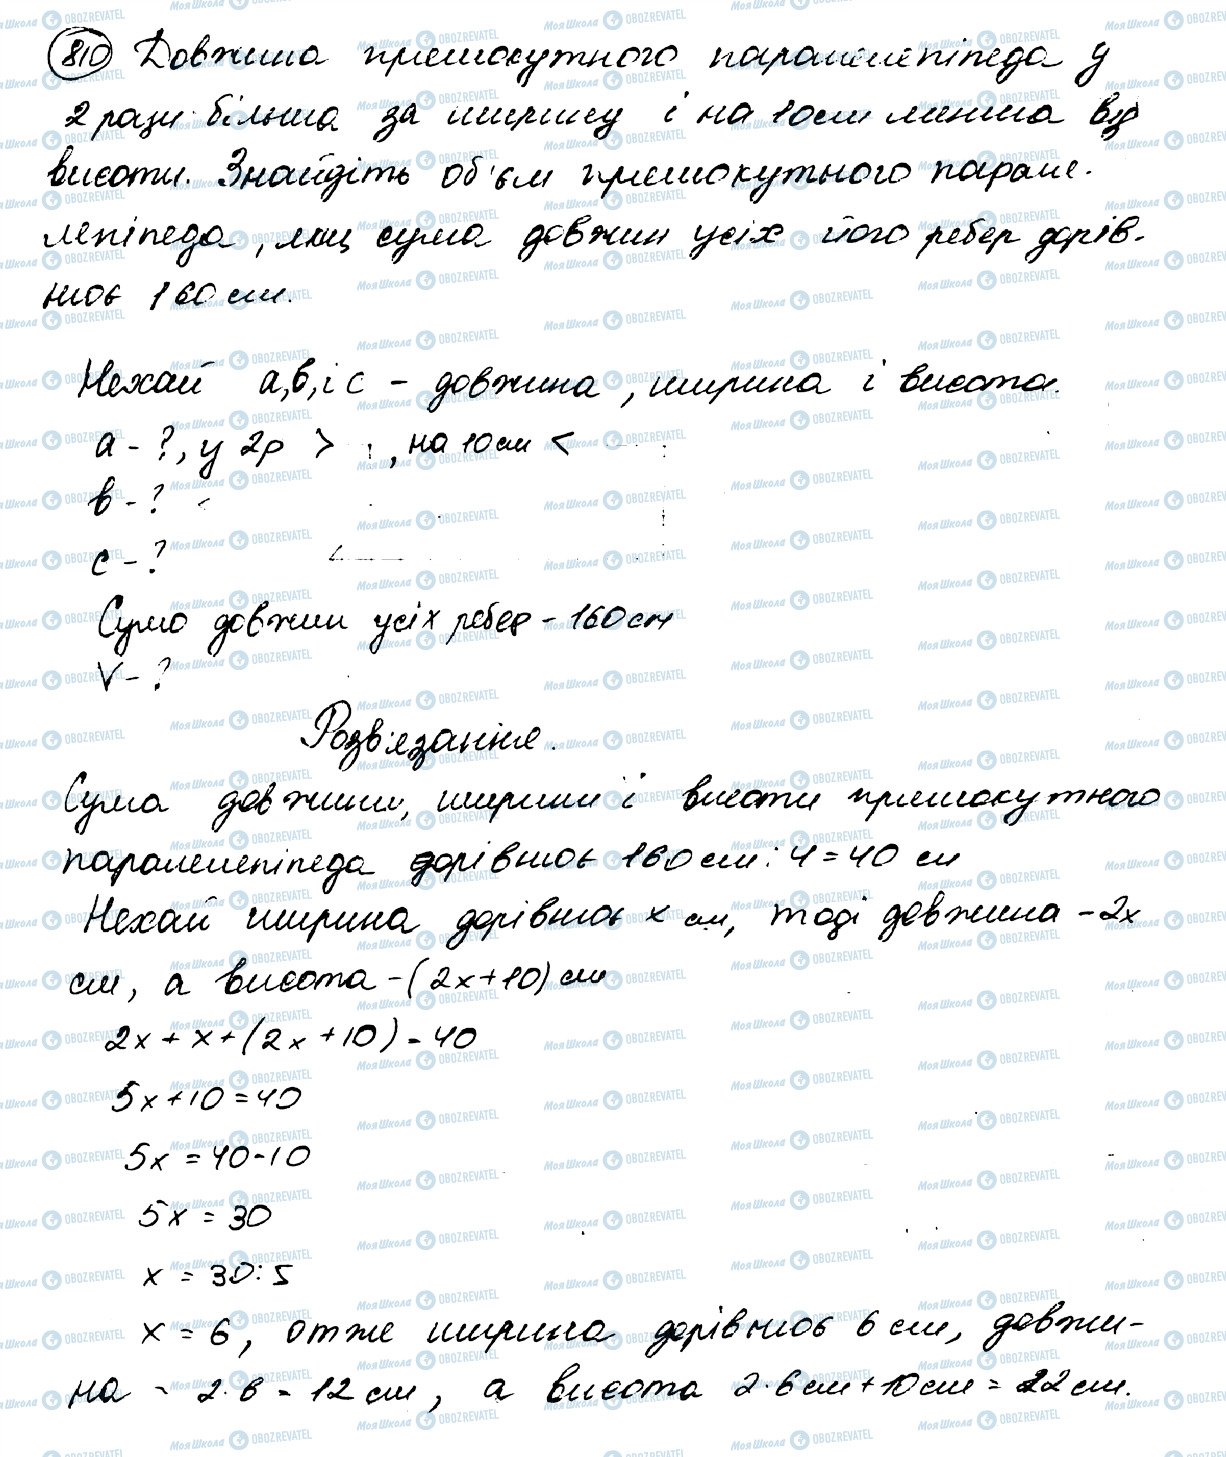 810 Довжина прямокутного паралелепіпеда у
2 рази більша за ширину і на 10 см менша від
висоти. Знайдіть об'єм прямокутного парале-
лепіпеда, якщ сума довжин усіх його ребер дорів-
нює 160 см.
Нехай а, в, і с – довжина, ширина і висота.
а - ?, у 2р > , на 10 см <
в - ?
с - ?
Сума довжин усіх ребер - 160 см
V - ?
Розв'язання.
Сума довжини, ширини і висоти прямокутного
паралелепіпеда дорівнює 160 см : 4 = 40 см
Нехай ширина дорівнює х см, тоді довжина – 2х
см, а висота – (2х + 10) см
2х + х + (2х + 10) = 40
5х + 10 = 40
5х = 40 - 10
5х = 30
х = 30 : 5
х = 6, отже ширина дорівнює 6 см, довжи-
на - 2 · 6 = 12 см, а висота 2 · 6 см + 10 см = 22 см.